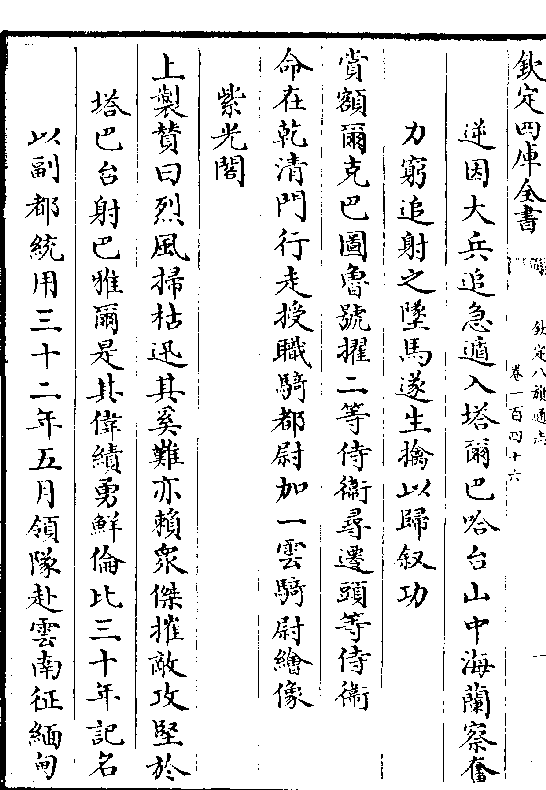 欽定四庫全書
欽定八旗通志
卷一百四十六
逆因大兵追急遁入塔爾巴哈台山中海蘭察奮
力窮追射之墜馬遂生擒以歸叙功
賞額爾克巴圖魯號擢二等侍衛尋遷頭等侍衛
命在乾清門行走授職騎都尉加一雲騎尉繪像
紫光閣
上製贊曰烈風掃枯迅其奚難亦賴衆傑摧敵攻堅於
塔巴台射巴雅爾是其偉績勇鮮倫比三十年記名
以副都統用三十二年五月領隊赴雲南征緬甸